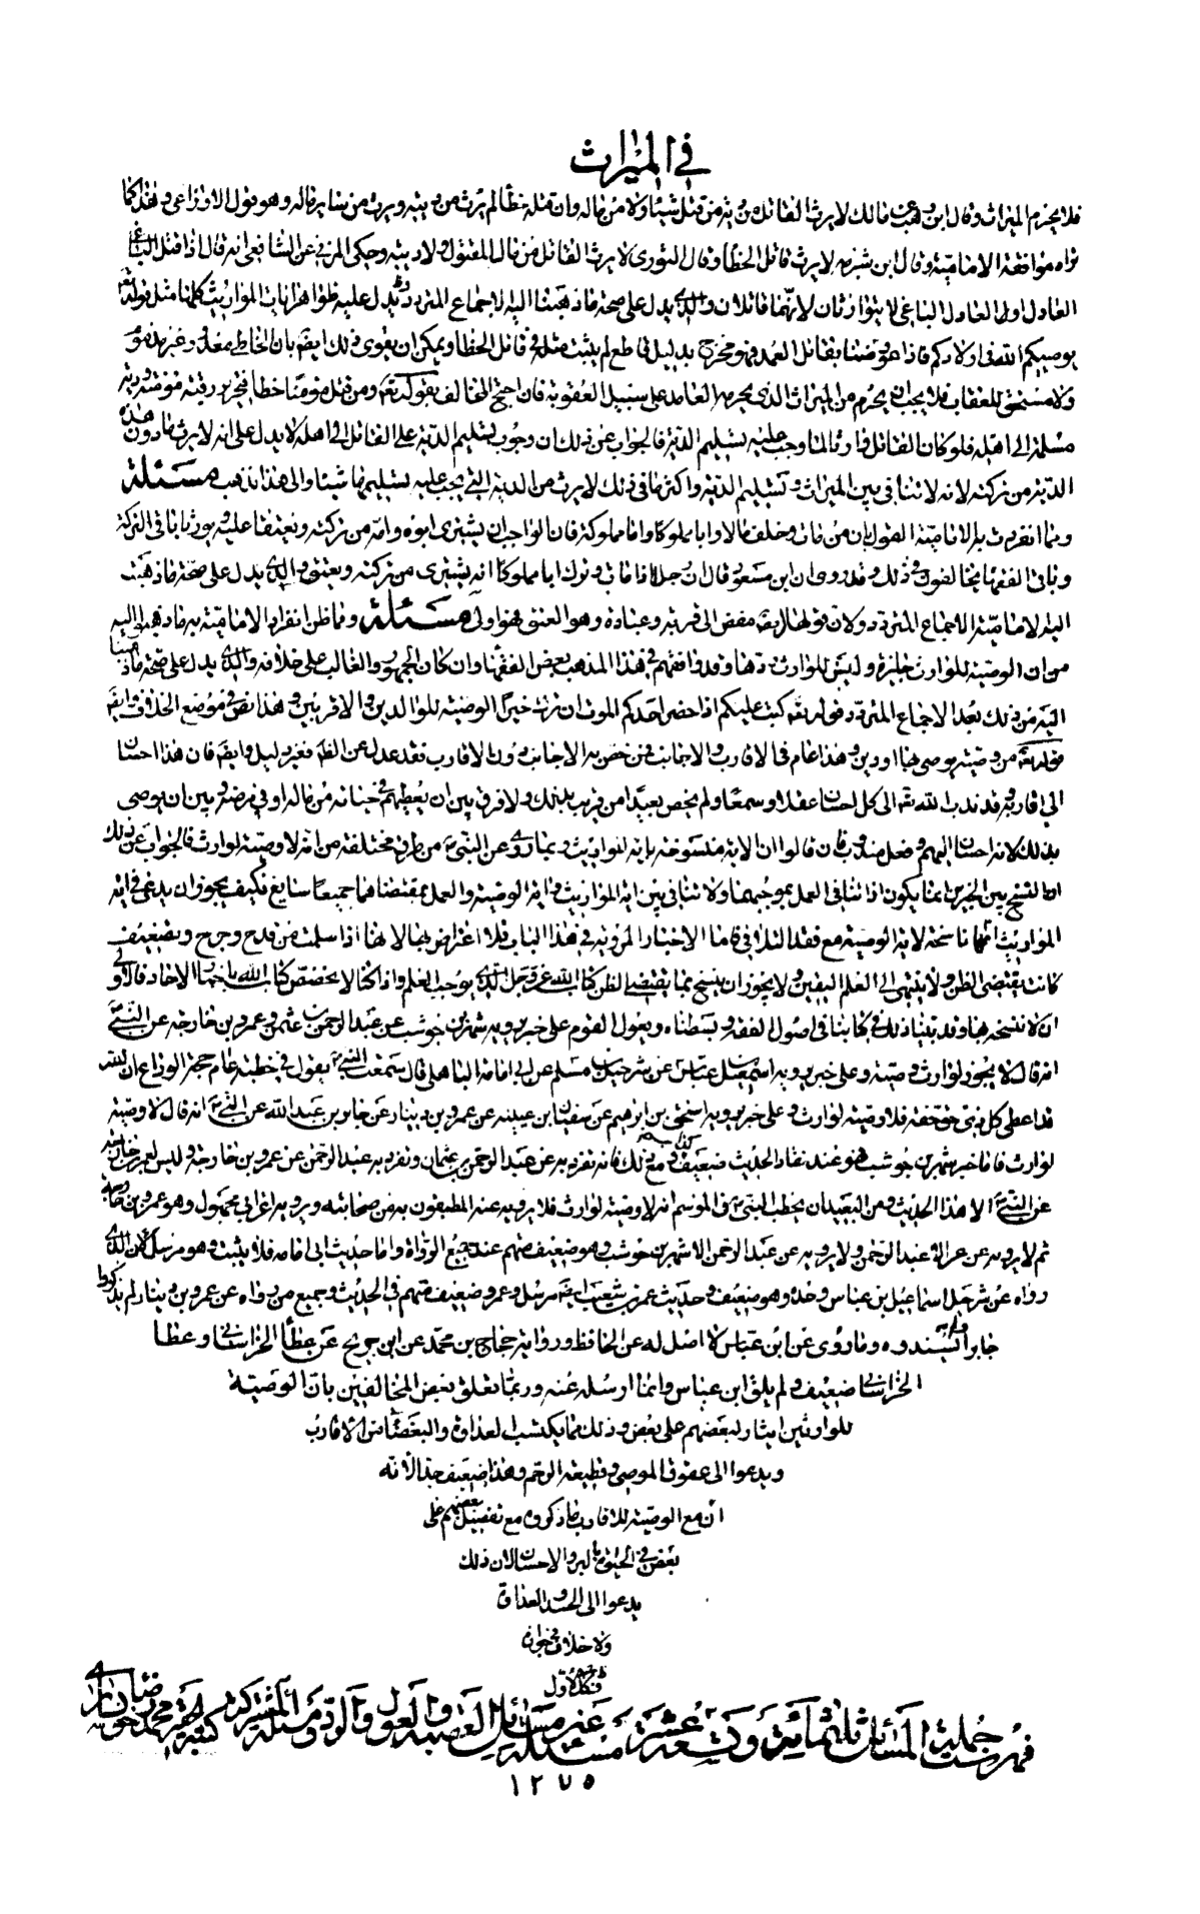 في الميراث
فلا يحرم الميراث وقال ابن وهب عن مالك لا يرث القاتل من دية من قتل شيئا ولا من ماله وان قتله خطأ لم يرث من ديته ويرث من سائر ماله وهو قول الاوزاعي وهذا كما
تراه موافقة الامامية وقال ابن شبرمه لا يرث قاتل الخطأ وقال الثوري لا يرث القاتل من مال المقتول ولا ديته وحكى المزني عن الشافعي انه قال اذا قتل الباغي
العادل او العادل الباغي لا يتوارثان لانهما قاتلان والذي يدل على صحة ما ذهبنا اليه الاجماع المتردد ويدل عليه ظواهر ايات المواريث كلها مثل قوله تعالى
يوصيكم الله في اولادكم فاذا عورضنا بقاتل العمد فهو مخرج بدليل قاطع لم يثبت مثله في قاتل الخطأ ويمكن ان يقوى ذلك ايضا بان الخاطي معذور وغير مذموم
ولا مستحق للعقاب فلا يجب ان يحرم من الميراث الذي يحرمه العامد على سبيل العقوبة فان احتج المخالف بقوله تعالى ومن قتل مؤمنا خطأ فتحرير رقبة مؤمنة ودية
مسلمة الى اهله فلو كان القاتل وارثا لما وجب عليه تسليم الدية فالجواب عن ذلك ان وجوب تسليم الدية على القاتل الى اهله لا يدل على انه لا يرث ما دون هذه
الدية من تركته لانه لا تنافي بين الميراث وتسليم الدية واكثر ما في ذلك لا يرث من الدية التي يجب عليه تسليمها شيئا والى هذا نذهب مسئلة
ومما انفردت به الامامية القول بان من مات وخلف مالا وابا مملوكا واما مملوكة فان الواجب ان يشترى ابوه وامه من تركته ويعتقا عليه ويورثا باقي التركة
وباقي الفقهاء يخالفون في ذلك وقد روى ان ابن مسعود قال ان رجلا اذا مات وترك ابا مملوكا انه يشترى من تركته ويعتق والذي يدل على صحة ما ذهبت
اليه الامامية الاجماع المتردد ولان قولها ايضا مفض الى قربة وعبادة وهو العتق فهو اولى مسئلة ومما ظن انفراد الامامية به ما ذهبوا اليه
من ان الوصية للوارث جايزة وليس للوارث ردها وقد وافقهم في هذا المذهب بعض الفقهاء وان كان الجمهور والغالب على خلافه والذي يدل على صحة ما ذهبنا
اليه من ذلك بعد الاجماع المتردد قوله تعالى كتب عليكم اذا حضر احدكم الموت ان ترك خيرا الوصية للوالدين والاقربين وهذا نص في موضع الخلاف وايضا
قوله تعالى من وصية يوصي بها او دين وهذا عام في الاقارب والاجانب فمن خص به الاجانب دون الاقارب فقد عدل عن الظاهر بغير دليل وايضا فان هذا احسان
الى اقاربه وقد ندب الله تعالى الى كل احسان عقلا وسمعا ولم يخص بعيدا من قريب بذلك ولا فرق بين ان يعطيهم في حياته من ماله او في مرضه وبين ان يوصي
بذلك لانه احسان اليهم وفعل مندوب فان قالوا ان الاية منسوخة باية المواريث وبما روي عن النبي من طرق مختلفة من انه لا وصية لوارث فالجواب عن ذلك
ان النسخ بين الخبرين انما يكون اذا تنافى العمل بموجبهما ولا تنافي بين اية المواريث واية الوصية والعمل بمقتضاهما جميعا سايغ فكيف يجوز ان يدعى في اية
المواريث انها ناسخة لاية الوصية مع فقد التنافي فاما الاخبار المروية في هذا الباب فلا اعتراض بها لانها اذا سلمت من قدح وجرح وتضعيف
كانت تقتضي الظن ولا ينتهي الى العلم اليقين ولا يجوز ان ينسخ بما يقتضي الظن كتاب الله عز وجل الذي يوجب العلم واذا كنا لا نخصص كتاب الله باخبار الاحاد فالاولى
ان لا ننسخه بها وقد بينا ذلك في كتابنا في اصول الفقه وبسطناه ويعول القوم على خبر يرويه شهر بن حوشب عن عبد الرحمن بن عثمان وعمرو بن خارجه عن النبي
انه قال لا يجوز لوارث وصية وعلى خبر يرويه اسمعيل بن عياش عن شرحبيل بن مسلم عن ابي امامة الباهلي قال سمعت النبي يقول في خطبة عام حجة الوداع ان الله
قد اعطى كل ذي حق حقه فلا وصية لوارث وعلى خبر يرويه اسحق بن ابرهيم عن سفيان ابن عيينه عن عمرو بن دينار عن جابر بن عبد الله عن النبي انه قال لا وصية
لوارث فاما خبر شهر بن حوشب فهو عند نقاد الحديث ضعيف كذاب ومع ذلك فانه تفرد به عن عبد الرحمن بن عثمان وتفرد به عبد الرحمن عن عمرو بن خارجه وليس لعمرو بن خارجة
عن النبي الا هذا الحديث ومن البعيد ان يخطب النبي في الموسم انه لا وصية لوارث فلا يرويه عنه المطيفون به من صحابته ويرويه اعرابي مجهول وهو عمرو بن خارجة
ثم لا يرويه عن عمرو الا عبد الرحمن ولا يرويه عن عبد الرحمن الا شهر بن حوشب وهو ضعيف متهم عند جميع الرواة واما حديث ابي امامه فلا يثبت وهو مرسل لان الذي
رواه عن شرحبيل اسماعيل بن عياش وحده وهو ضعيف وحديث عمرو بن شعيب ايضا مرسل وعمرو ضعيف متهم في الحديث وجميع من رواه عن عمرو بن دينار لم يذكروا
جابرا ولم يسندوه وما روي عن ابن عباس لا اصل له عن الحافظ ورواية حجاج بن محمد عن ابن جريح عن عطأ الخراساني وعطا
الخراساني ضعيف ولم يلق ابن عباس وانما ارسله عنه وربما تعلق بعض المخالفين بان الوصية
للوارثين ايثار لبعضهم على بعض وذلك مما يكسب العداوة والبغضاء بين الاقارب
ويدعوا الى عقوق الموصي وقطيعة الرحم وهذا ضعيف جدا لانه
ان منع الوصية للاقارب ما ذكروه منع تفضيل بعضهم على
بعض في الحيوة بالبر والاحسان لان ذلك
يدعوا الى الحسد والعداوة
ولا خلاف في جوازه
فكذلك الاول
فهرست جملة المسائل ثلثمائة وتسعة عشرة مسئلة غير مسائل العصبة والعول والرد ومسئلة المشتركة كتبه احقر محمد رضا
١٢٧٥